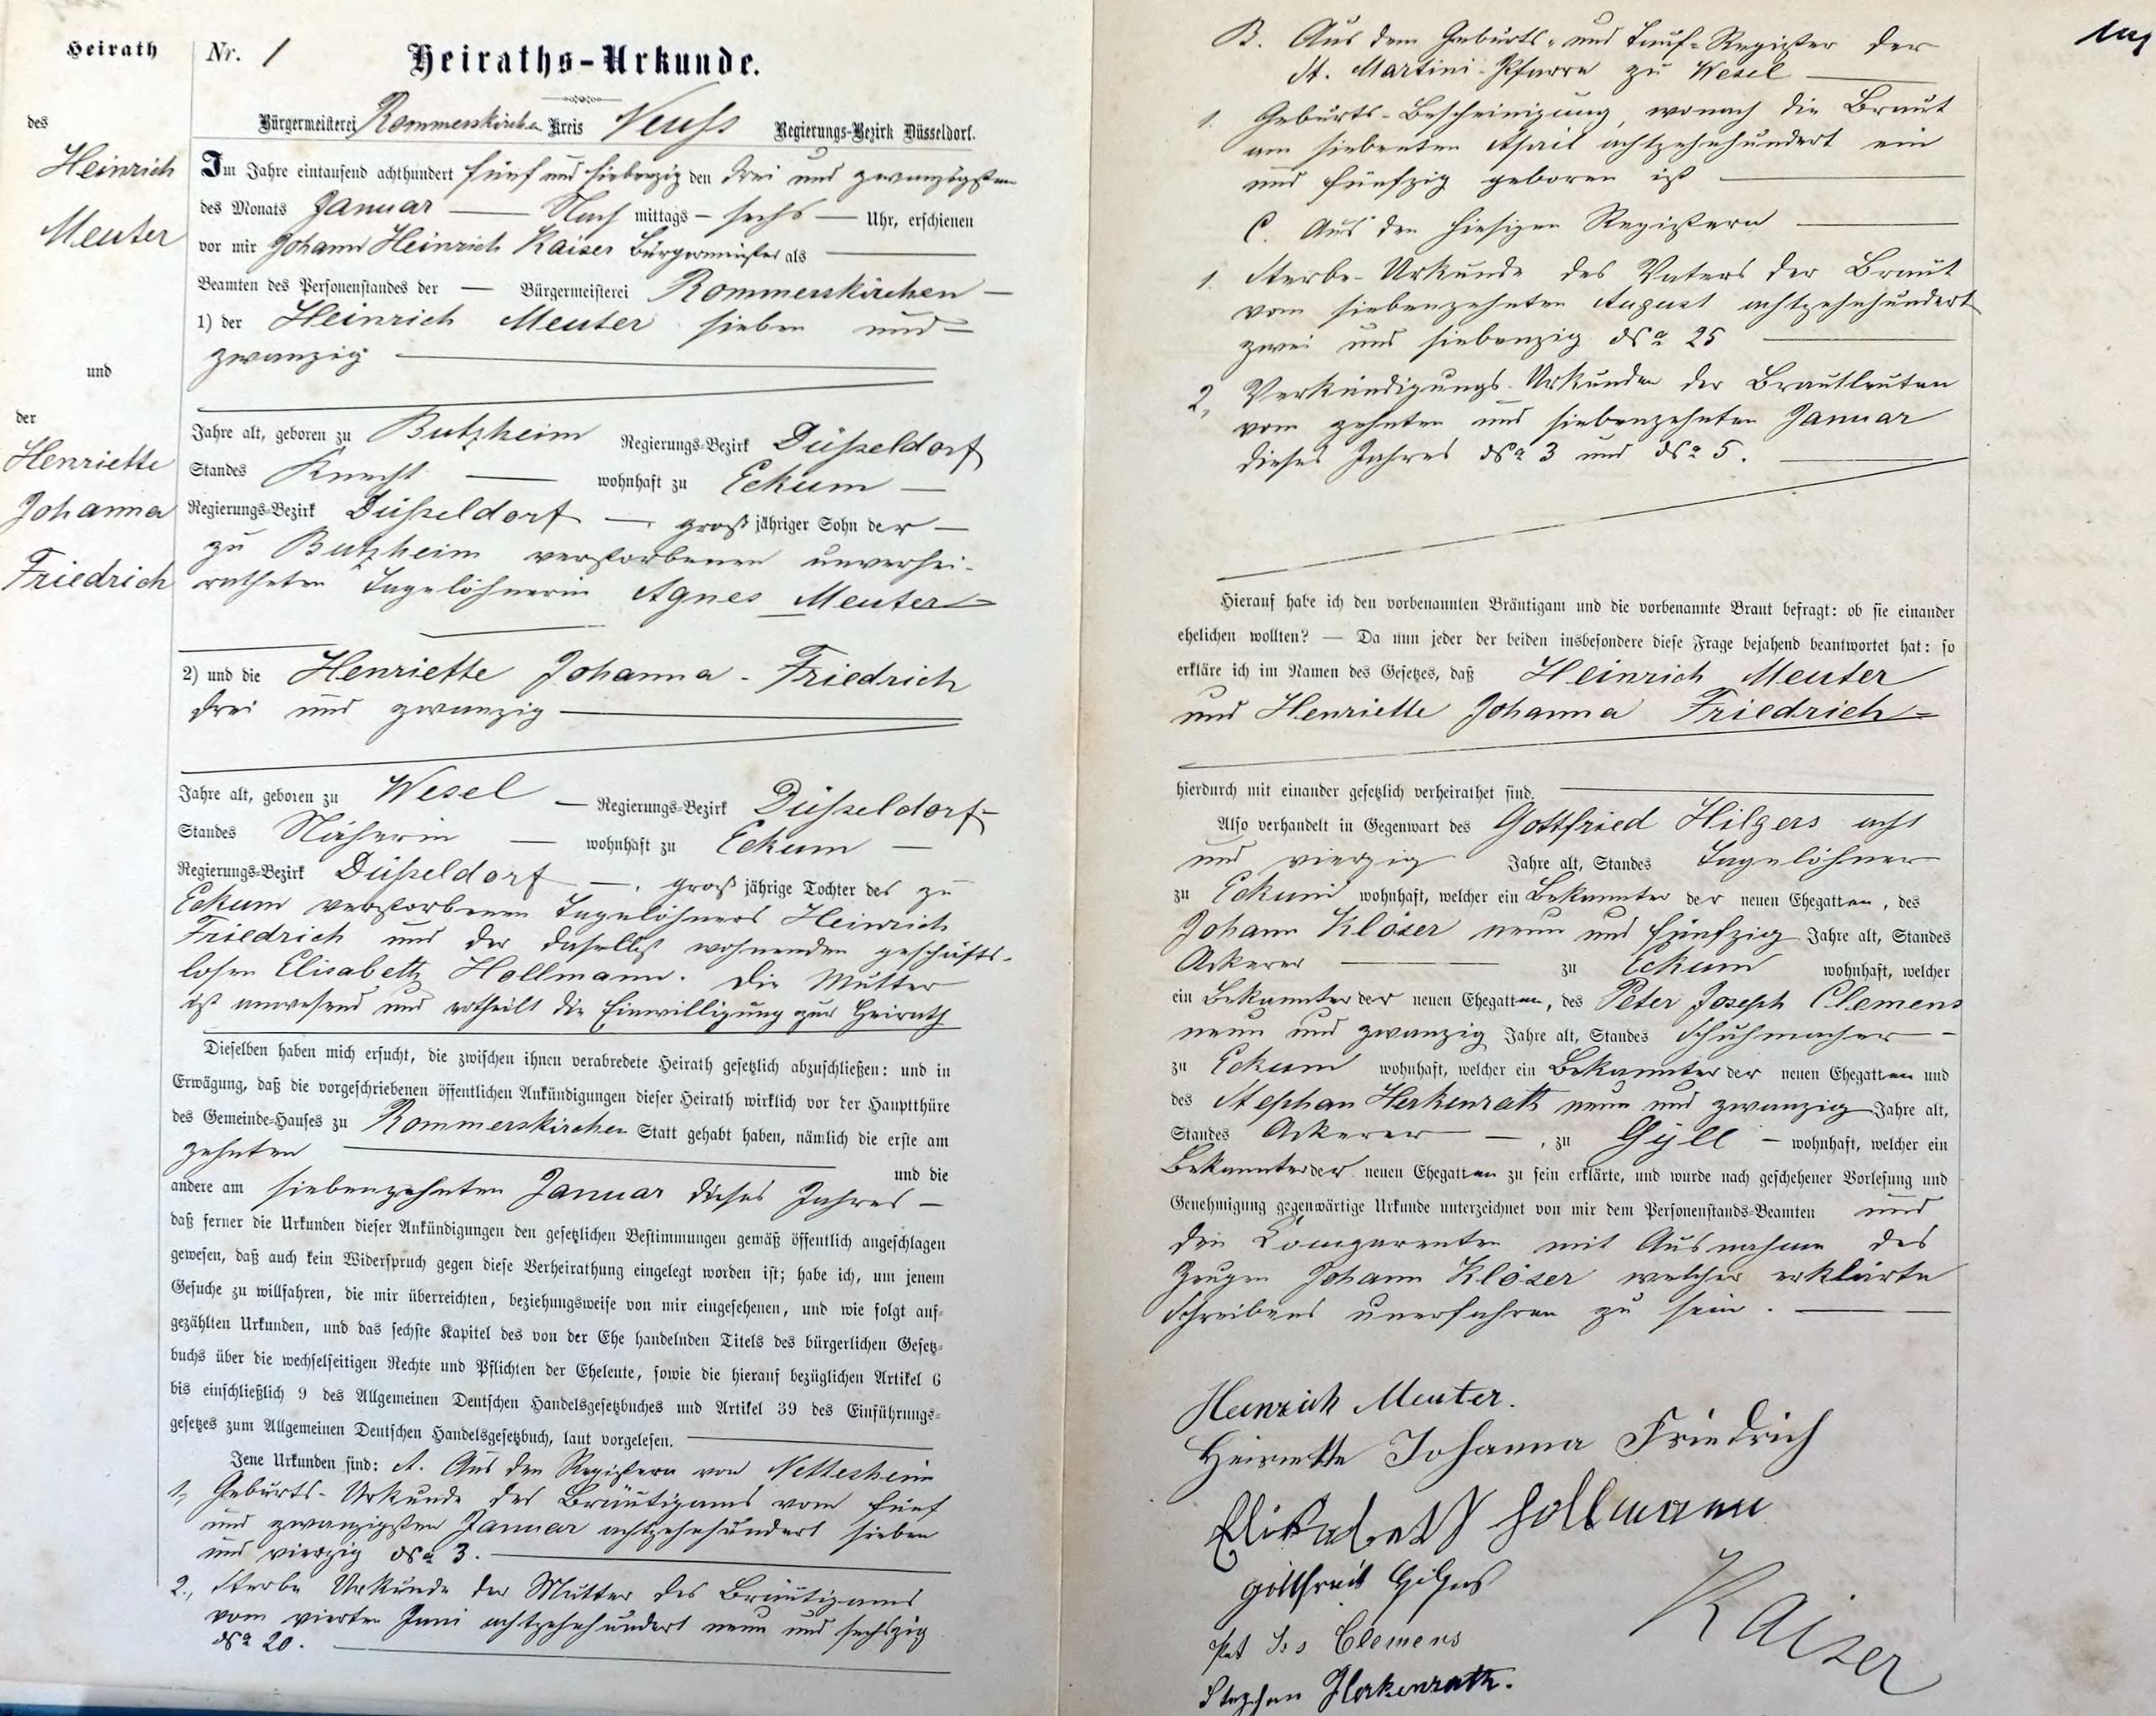 Heirath
des
Heinrich
Meuter
und
der
Henriette
Johanna
Friedrich
Nr. 1
Heiraths-Urkunde.
Bürgermeisterei Rommerskirchen Kreis Neuss Regierungs-Bezirk Düsseldorf.
Im Jahre eintausend achthundert fünf und siebenzig den drei und zwanzigsten
des Monats Januar — Nach mittags — sechs — Uhr, erschienen
vor mir Johann Heinrich Kaiser Bürgermeister als
Beamten des Personenstandes der — Bürgermeisterei Rommerskirchen —
1) der Heinrich Meuter sieben und
zwanzig
Jahre alt, geboren zu Butzheim Regierungs-Bezirk Düßeldorf
Standes Knecht — wohnhaft zu Eckum —
Regierungs-Bezirk Düßeldorf —, großjähriger Sohn der —
zu Butzheim verstorbenen unverhei-
ratheten Tagelöhnerin Agnes Meuter
2) und die Henriette Johanna - Friedrich
drei und zwanzig
Jahre alt, geboren zu Wesel — Regierungs-Bezirk Düßeldorf
Standes Näherin — wohnhaft zu Eckum —
Regierungs-Bezirk Düßeldorf —, großjährige Tochter des zu
Eckum verstorbenen Tagelöhners Heinrich
Friedrich und der daselbst wohnenden geschäfts-
losen Elisabeth Hollmann. Die Mutter
ist anwesend und ertheilt die Einwilligung zur Heirath
Dieselben haben mich ersucht, die zwischen ihnen verabredete Heirath gesetzlich abzuschließen: und in
Erwägung, daß die vorgeschriebenen öffentlichen Ankündigungen dieser Heirath wirklich vor der Hauptthüre
des Gemeinde-Hauses zu Rommerskirchen Statt gehabt haben, nämlich die erste am
zehnten und die
andere am siebenzehnten Januar dieses Jahres —
daß ferner die Urkunden dieser Ankündigungen den gesetzlichen Bestimmungen gemäß öffentlich angeschlagen
gewesen, daß auch kein Widerspruch gegen diese Verheirathung eingelegt worden ist; habe ich, um jenem
Gesuche zu willfahren, die mir überreichten, beziehungsweise von mir eingesehenen, und wie folgt auf-
gezählten Urkunden, und das sechste Kapitel des von der Ehe handelnden Titels des bürgerlichen Gesetz-
buchs über die wechselseitigen Rechte und Pflichten der Eheleute, sowie die hierauf bezüglichen Artikel 6
bis einschließlich 9 des Allgemeinen Deutschen Handelsgesetzbuches und Artikel 39 des Einführungs-
gesetzes zum Allgemeinen Deutschen Handelsgesetzbuch, laut vorgelesen.
Jene Urkunden sind: A. Aus den Registern von Nettesheim
1., Geburts-Urkunde des Bräutigams vom fünf
und zwanzigsten Januar achtzehnhundert sieben
und vierzig No 3.
2., Sterbe Urkunde der Mutter des Bräutigams
vom vierten Juni achtzehnhundert neun und sechszig
No 20.
B. Aus dem Geburts- und Tauf-Register der
St. Martini-Pfarre zu Wesel
1. Geburts-Bescheinigung, wonach die Braut
am siebenten April achtzehnhundert ein
und fünfzig geboren ist
C. Aus den hiesigen Registern
1. Sterbe-Urkunde des Vaters der Braut
vom siebenzehnten August achtzehnhundert
zwei und siebenzig No 25
2, Verkündigungs Urkunden der Brautleuten
vom zehnten und siebenzehnten Januar
dieses Jahres No 3 und No 5.
Hierauf habe ich den vorbenannten Bräutigam und die vorbenannte Braut befragt: ob sie einander
ehelichen wollten? — Da nun jeder der beiden insbesondere diese Frage bejahend beantwortet hat: so
erkläre ich im Namen des Gesetzes, daß Heinrich Meuter
und Henriette Johanna Friedrich
hierdurch mit einander gesetzlich verheirathet sind.
Also verhandelt in Gegenwart des Gottfried Hilgers acht
und vierzig Jahre alt, Standes Tagelöhner
zu Eckum wohnhaft, welcher ein Bekannter der neuen Ehegatten, des
Johann Klöser neun und fünfzig Jahre alt, Standes
Ackerer — zu Eckum wohnhaft, welcher
ein Bekannter der neuen Ehegatten, des Peter Joseph Clemens
neun und zwanzig Jahre alt, Standes Schuhmacher —
zu Eckum wohnhaft, welcher ein Bekannter der neuen Ehegatten und
des Stephan Herkenrath neun und zwanzig Jahre alt,
Standes Ackerer —, zu Gyll — wohnhaft, welcher ein
Bekannter der neuen Ehegatten zu sein erklärte, und wurde nach geschehener Vorlesung und
Genehmigung gegenwärtige Urkunde unterzeichnet von mir dem Personenstands-Beamten und
den Comparenten mit Ausnahme des
Zeugen Johann Klöser welcher erklärte
Schreibens unerfahren zu sein.
Heinrich Meuter.
Henriette Johanna Friedrich
Elisabeth Hollmann
Gottfried Hilgers
Pet Jos Clemens
Kaiser
Stephan Herkenrath.